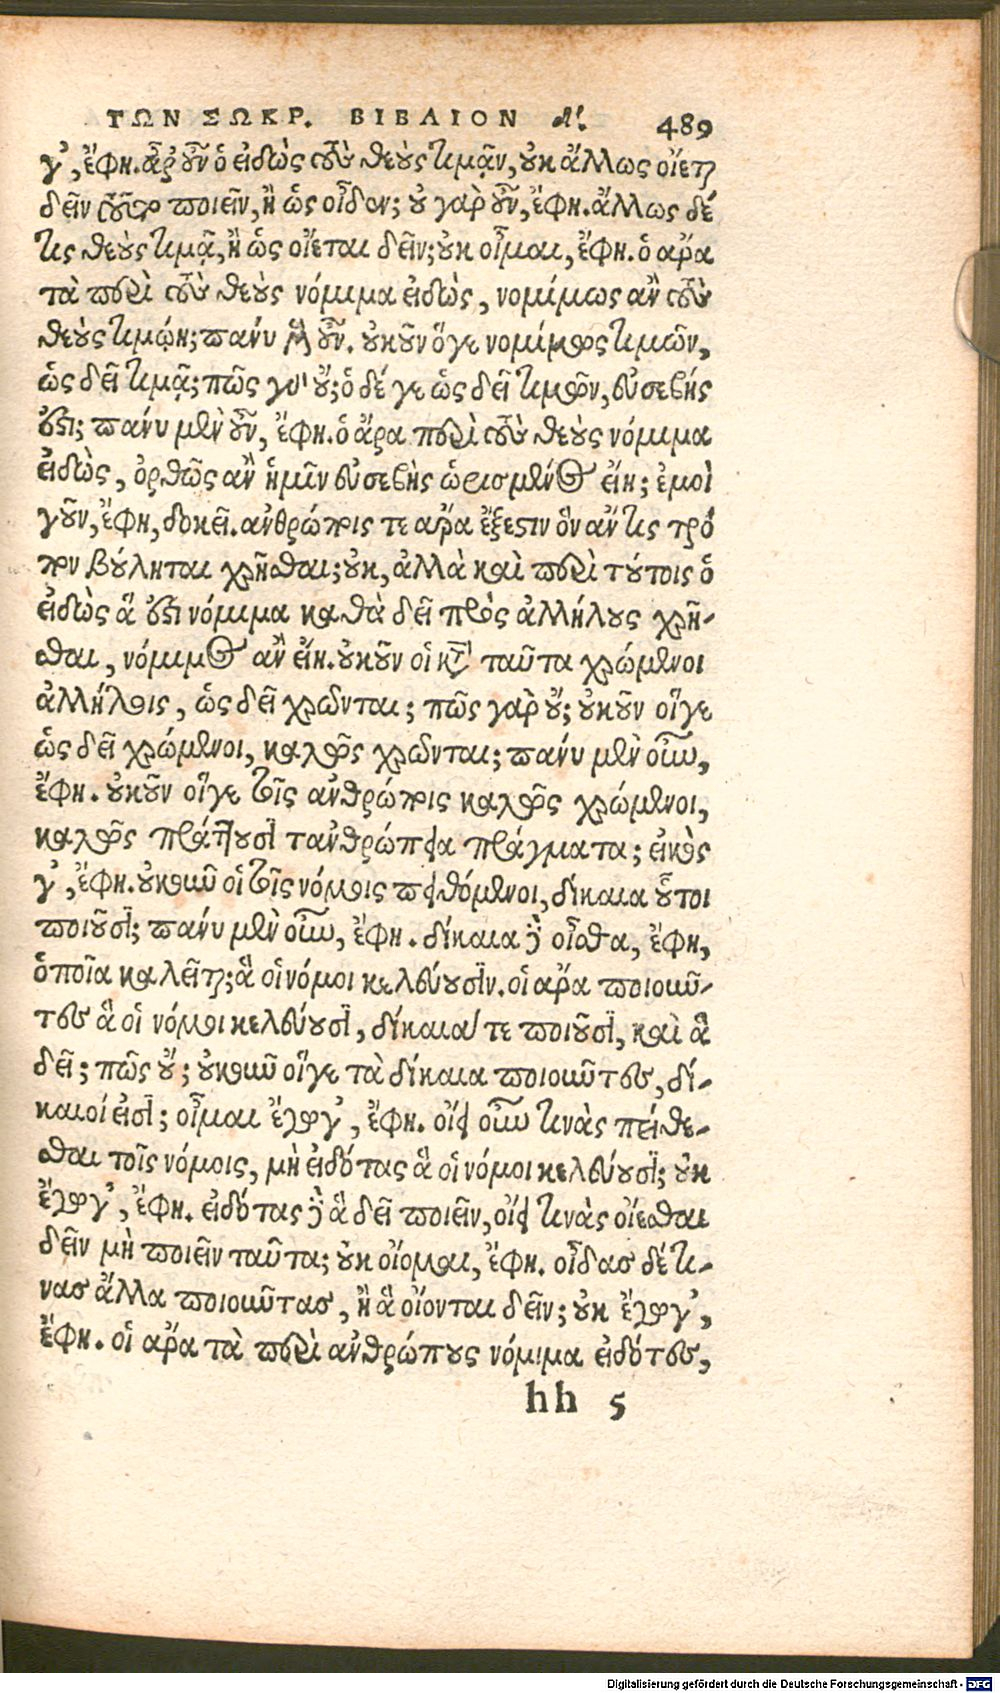 ΤΩΝ ΣΩΚΡ. ΒΙΒΛΙΟΝ δ'. 489
γ', ἔφη. ἆρ' οὖν ὁ εἰδὼς τοὺς θεοὺς τιμᾷν, οὐκ ἄλλως οἴεται
δεῖν τοῦτο ποιεῖν, ἢ ὡς οἶδεν; οὐ γὰρ οὖν, ἔφη. ἄλλως δέ
τις θεοὺς τιμᾷ, ἢ ὡς οἴεται δεῖν; οὐκ οἶμαι, ἔφη. ὁ ἄρα
τὰ περὶ τοὺς θεοὺς νόμιμα εἰδὼς, νομίμως ἂν τοὺς
θεοὺς τιμῴη; πάνυ μὲν οὖν. οὐκοῦν ὅγε νομίμως τιμῶν,
ὡς δεῖ τιμᾷ; πῶς γὰρ οὔ; ὁ δέ γε ὡς δεῖ τιμῶν, εὐσεβής
ἐστι; πάνυ μὲν οὖν, ἔφη. ὁ ἄρα περὶ τοὺς θεοὺς νόμιμα
εἰδὼς, ὀρθῶς ἂν ἡμῖν εὐσεβὴς ὡρισμένος εἴη; ἐμοὶ
γοῦν, ἔφη, δοκεῖ. ἀνθρώποις τε ἄρα ἔξεστιν ὃν ἄν τις τρό
πον βούληται χρῆσθαι; οὐκ, ἀλλὰ καὶ περὶ τούτοις ὁ
εἰδὼς ἅ ἐστι νόμιμα καθὰ δεῖ πρὸς ἀλλήλους χρῆ-
σθαι, νόμιμος ἂν εἴη. οὐκοῦν οἱ κατὰ ταῦτα χρώμενοι
ἀλλήλοις, ὡς δεῖ χρῶνται; πῶς γὰρ οὔ; οὐκοῦν οἵγε
ὡς δεῖ χρώμενοι, καλῶς χρῶνται; πάνυ μὲν οὖν,
ἔφη. οὐκοῦν οἵγε τοῖς ἀνθρώποις καλῶς χρώμενοι,
καλῶς πράττουσι τἀνθρώπεια πράγματα; εἰκὸς
γ', ἔφη. οὐκοῦν οἱ τοῖς νόμοις πειθόμενοι, δίκαια οὗτοι
ποιοῦσι; πάνυ μὲν οὖν, ἔφη. δίκαια δὲ οἶσθα, ἔφη,
ὁποῖα καλεῖται; ἃ οἱ νόμοι κελεύουσιν. οἱ ἄρα ποιοῦν-
τες ἃ οἱ νόμοι κελεύουσι, δίκαιά τε ποιοῦσι, καὶ ἃ
δεῖ; πῶς οὔ; οὐκοῦν οἵγε τὰ δίκαια ποιοῦντες, δί-
καιοί εἰσι; οἶμαι ἔγωγ', ἔφη. οἴει οὖν τινὰς πείθε-
σθαι τοῖς νόμοις, μὴ εἰδότας ἃ οἱ νόμοι κελεύουσι; οὐκ
ἔγωγ', ἔφη. εἰδότας δὲ ἃ δεῖ ποιεῖν, οἴει τινὰς οἴεσθαι
δεῖν μὴ ποιεῖν ταῦτα; οὐκ οἴομαι, ἔφη. οἶδας δέ τι-
νας ἄλλα ποιοῦντας, ἢ ἃ οἴονται δεῖν; οὐκ ἔγωγ',
ἔφη. οἱ ἄρα τὰ περὶ ἀνθρώπους νόμιμα εἰδότες,
hh 5
Digitalisierung gefördert durch die Deutsche Forschungsgemeinschaft - DFG